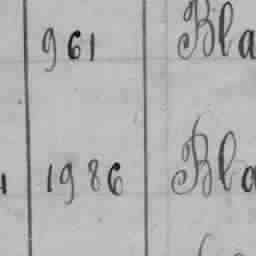 961 Bla
1986 Bla